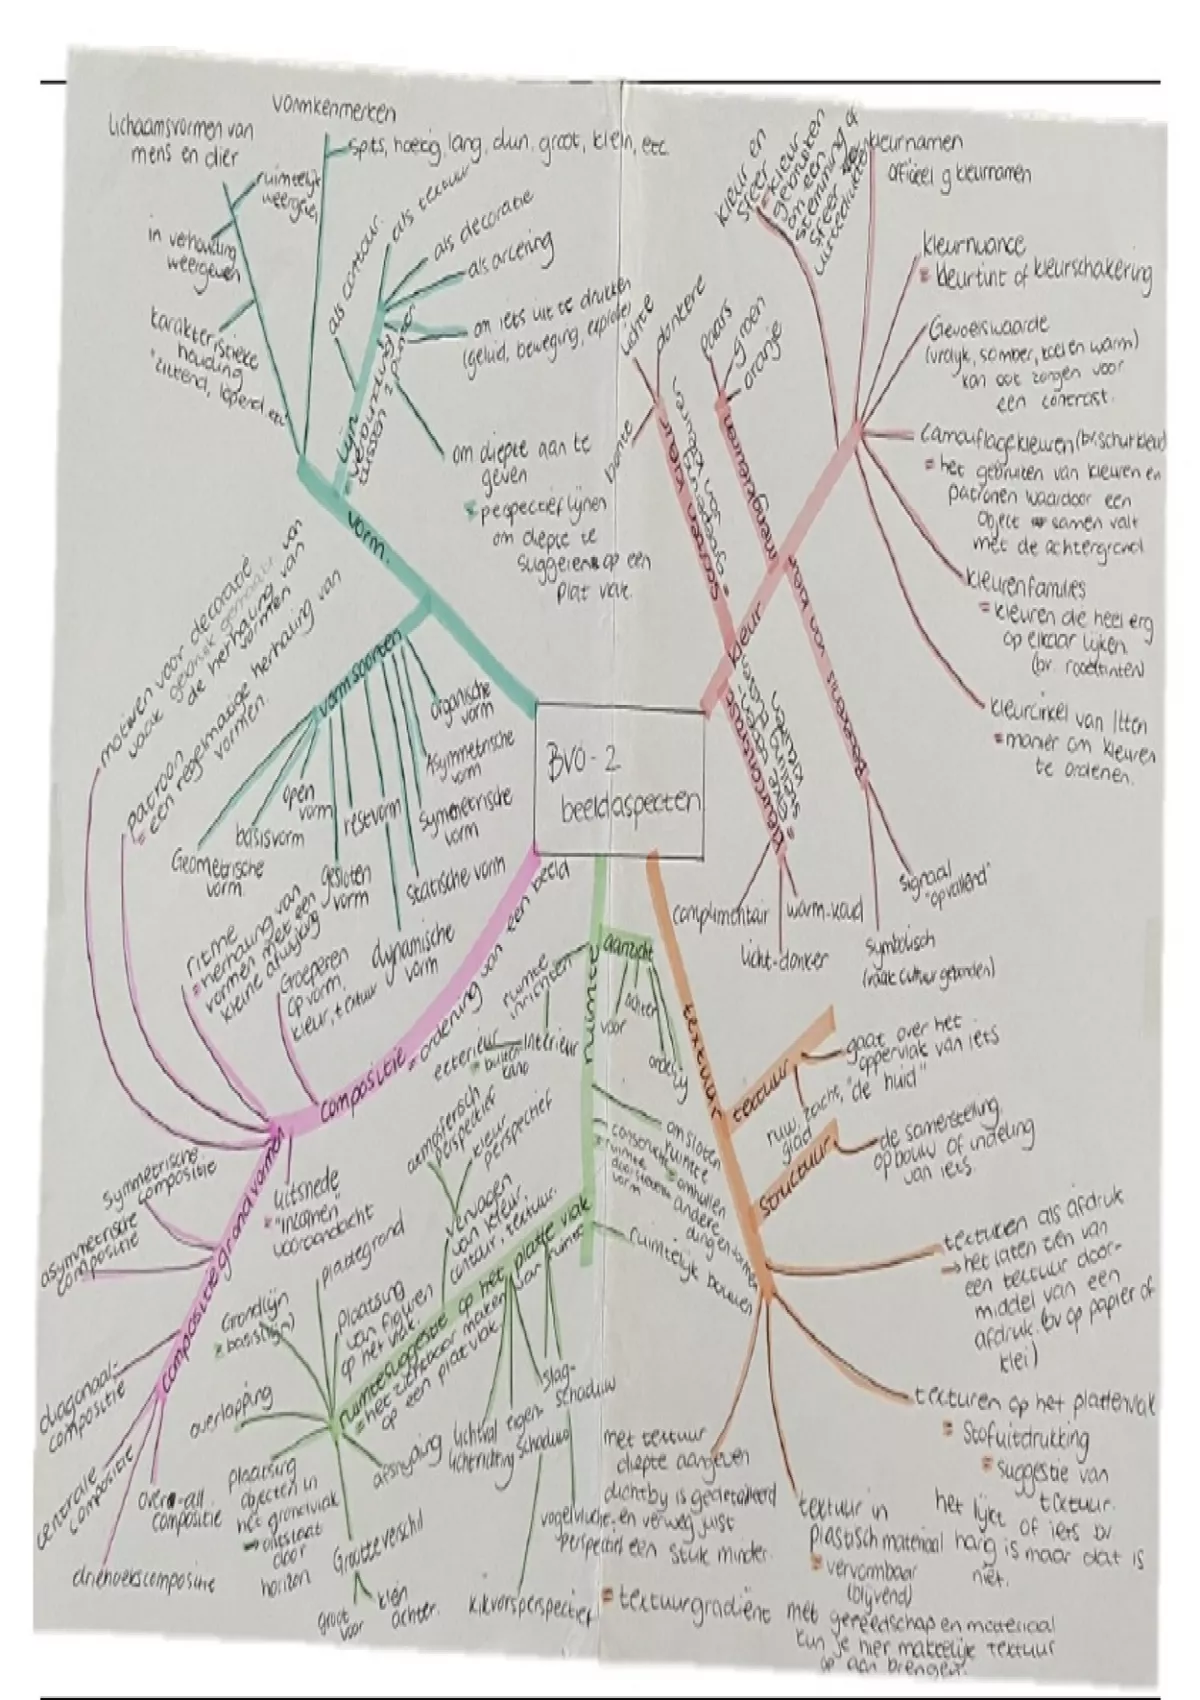 BVO-2
beeldaspecten
vorm.
vormkenmerken
spits, hoekig, lang, dun, groot, klein, etc
lichaamsvormen van
mens en dier
ruimtelijk
weergeven
in verhouding
weergeven
karakteristieke
houding
"zittend, lopend, etc
lijn
= verbinding
tussen 2 punten
als contour.
als textuur
als decoratie
als arcering
om iets uit te drukken
(geluid, beweging, explosie)
om diepte aan te
geven
= perspectieflijnen
om diepte te
op een
plat vlak.
vormsoorten
Geometrische
vorm
basisvorm
open
vorm
gesloten
vorm
restvorm
dynamische
vorm
statische vorm
symmetrische
vorm
Asymmetrische
vorm
organische
vorm
kleur
kleur en
sfeer
= kleuren
gebruiken
om een
stemming of
sfeer
kleurnamen
officieel g kleurnamen
kleurnuance
= kleurtint of kleurschakering
Gevoelswaarde
(vrolijk, somber, koel en warm)
kan ook zorgen voor
een contrast.
camouflagekleuren
= het gebruiken van kleuren en
patronen waardoor een
object samen valt
met de achtergrond
kleurenfamilies
= kleuren die heel erg
op elkaar lijken.
(bv. roodtinten)
kleurcirkel van Itten
= manier om kleuren
te ordenen.
mengkleuren
paars
groen
oranje
soorten kleur
lichte
donkere
bonte
Betekenis van kleur
signaal
"opvallend"
symbolisch
(vaak cultuur gebonden)
kleurcontrast
complimentair
licht-donker
warm-koud
compositie
= ordening van een beeld
motieven voor decoratie
vaak gebruik gemaakt van
de herhaling van
vormen
patroon
= een regelmatige herhaling van
vormen.
ritme
= herhaling van
vormen met een
kleine afwijking
Groeperen
op vorm,
kleur, textuur
uitsnede
= "inzomen"
vooraandacht
compositie grondvormen
symmetrische
compositie
asymmetrische
compositie
diagonaal-
compositie
centrale
compositie
driehoekscompositie
over-all
compositie
ruimte
aanzicht
voor
achter
onder
zij
ruimte
inrichten
interieur
exterieur
= buiten
kant
omsloten
ruimte
= omhullen
andere
ruimtelijk bouwen
ruimtesuggestie op het platte vlak
= het zichtbaar maken van ruimte
op een plat vlak.
atmosferisch
perspectief
kleur
perspectief
vervagen
van kleur,
contour, textuur.
plattegrond
plaatsing
van figuren
op het vlak.
Grondlijn
= basis(lijn)
overlapping
plaatsing
objecten in
het grondvlak
→ ontstaat
door
horizon
Grootteverschil
groot
voor
klein
achter.
afsnijding
lichtval
lichtrichting
eigen
schaduw
slag-
schaduw
vogelvlucht
perspectief
kikvorsperspectief
textuur
textuur
gaat over het
oppervlak van iets
ruw, zacht, "de huid"
glad
structuur
de samenstelling,
opbouw of indeling
van iets.
texturen als afdruk
→ het laten zien van
een textuur door-
middel van een
afdruk. (bv op papier of
klei)
texturen op het plattevlak
= Stofuitdrukking
= suggestie van
textuur.
het lijkt of iets bv
harig is maar dat is
niet.
textuur in
plastisch materiaal
= vervormbaar
(blijvend)
met gereedschap en materiaal
kun je hier makkelijk textuur
op aan brengen.
met textuur
diepte aangeven
dichtby is gedetaileerd
en verweg juist
een stuk minder.
= textuurgradiënt